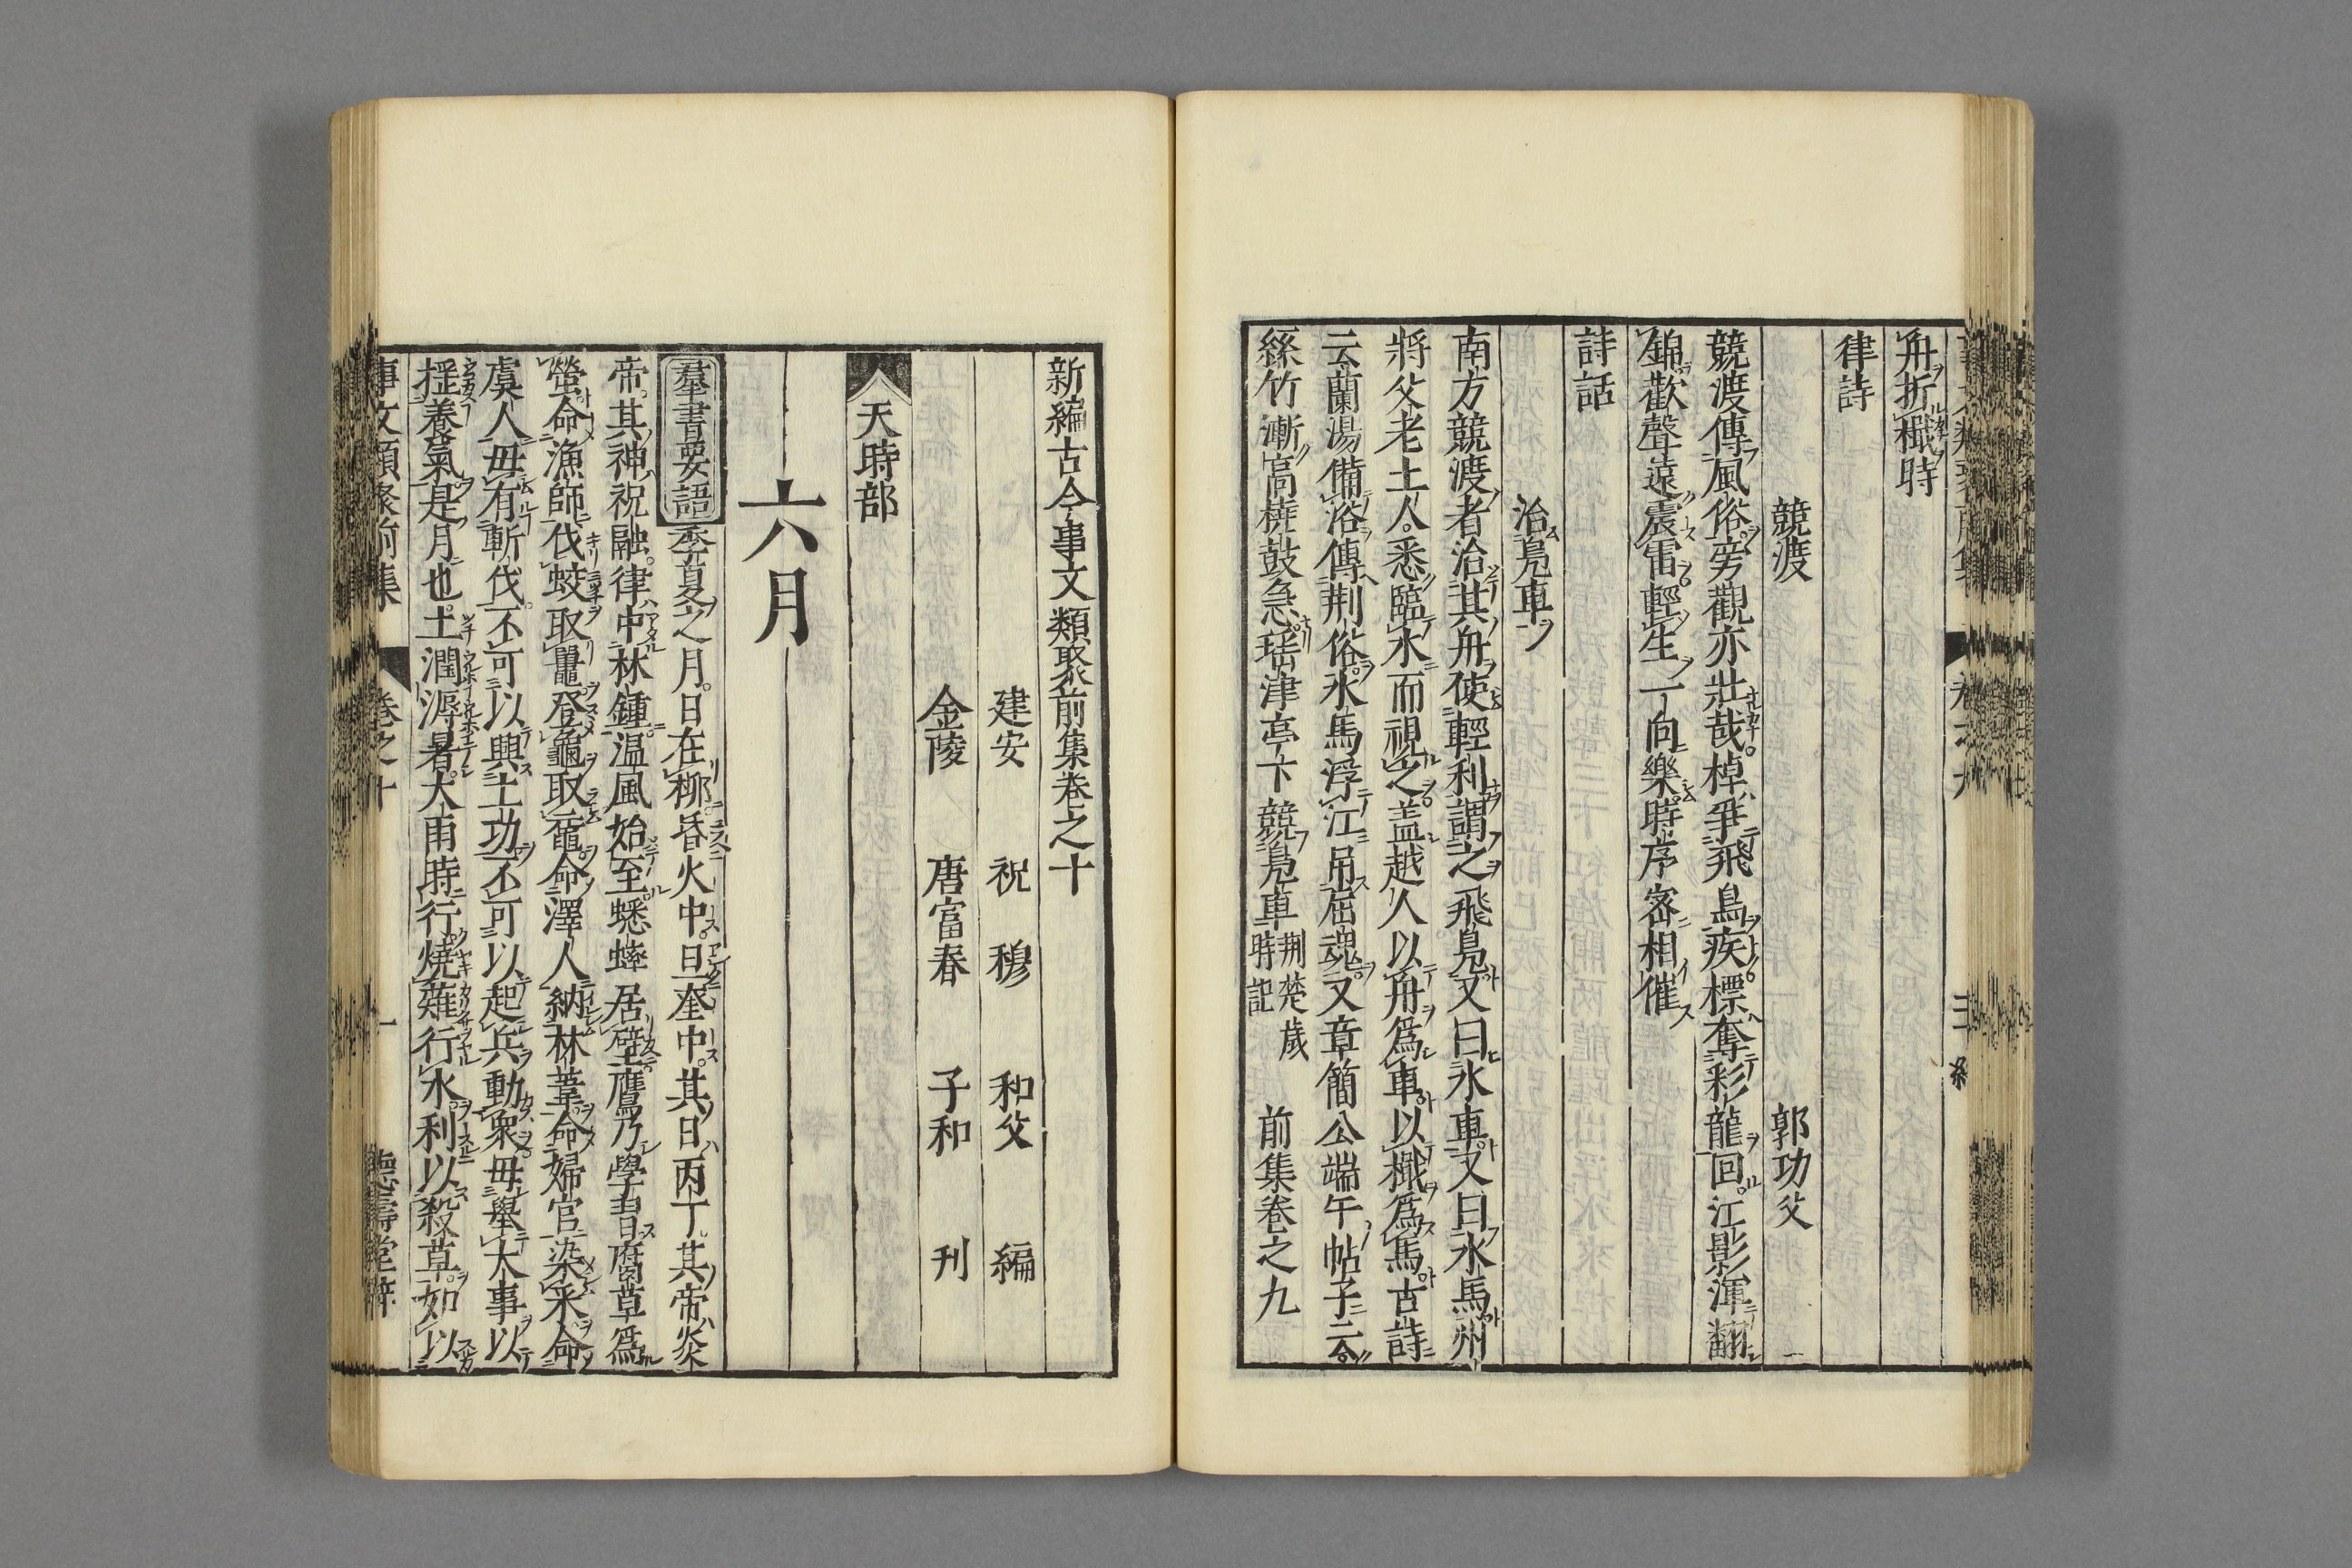 舟折檝時
律詩
競渡 郭功父
競渡傳風俗旁觀亦壯哉棹爭飛鳥疾標奪彩龍回江影渾翻
錦歡聲遠震雷輕生一向樂時序密相催
詩話
治鳧車
南方競渡者治其舟使輕利謂之飛鳧又曰水車又曰水馬州
將父老土人悉臨水而視之盖越人以舟爲車以檝爲馬古詩
云蘭湯備浴傳荆俗水馬浮江吊屈魂又章簡公端午帖子云
絲竹漸高橈鼓急瑶津亭下競鳧車荆楚歲時記 前集卷之九
新編古今事文類聚前集卷之十
建安 祝 穆 和父 編
金陵 唐富春 子和 刊
天時部
六月
羣書要語季夏之月日在柳昏火中旦奎中其日丙丁其帝炎
帝其神祝融律中林鍾温風始至蟋蟀居壁鷹乃學習腐草爲
螢命漁師伐蛟取鼉登龜取黿命澤人納林葦命婦官染采命
虞人毋有斬伐不可以興土功不可以起兵動衆毋舉大事以
揺養氣是月也土潤溽暑大雨時行燒薙行水利以殺草如以
事文類聚前集 卷之十 一 德壽堂梓